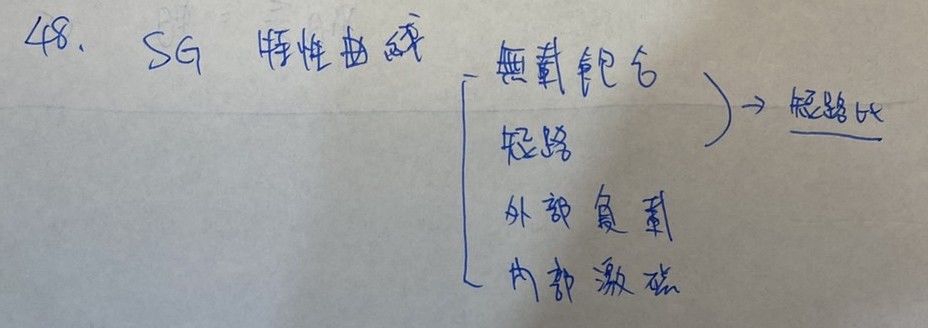 48. SG 特性曲線
無載飽合 → 短路比
短路
外部負載
內部激磁